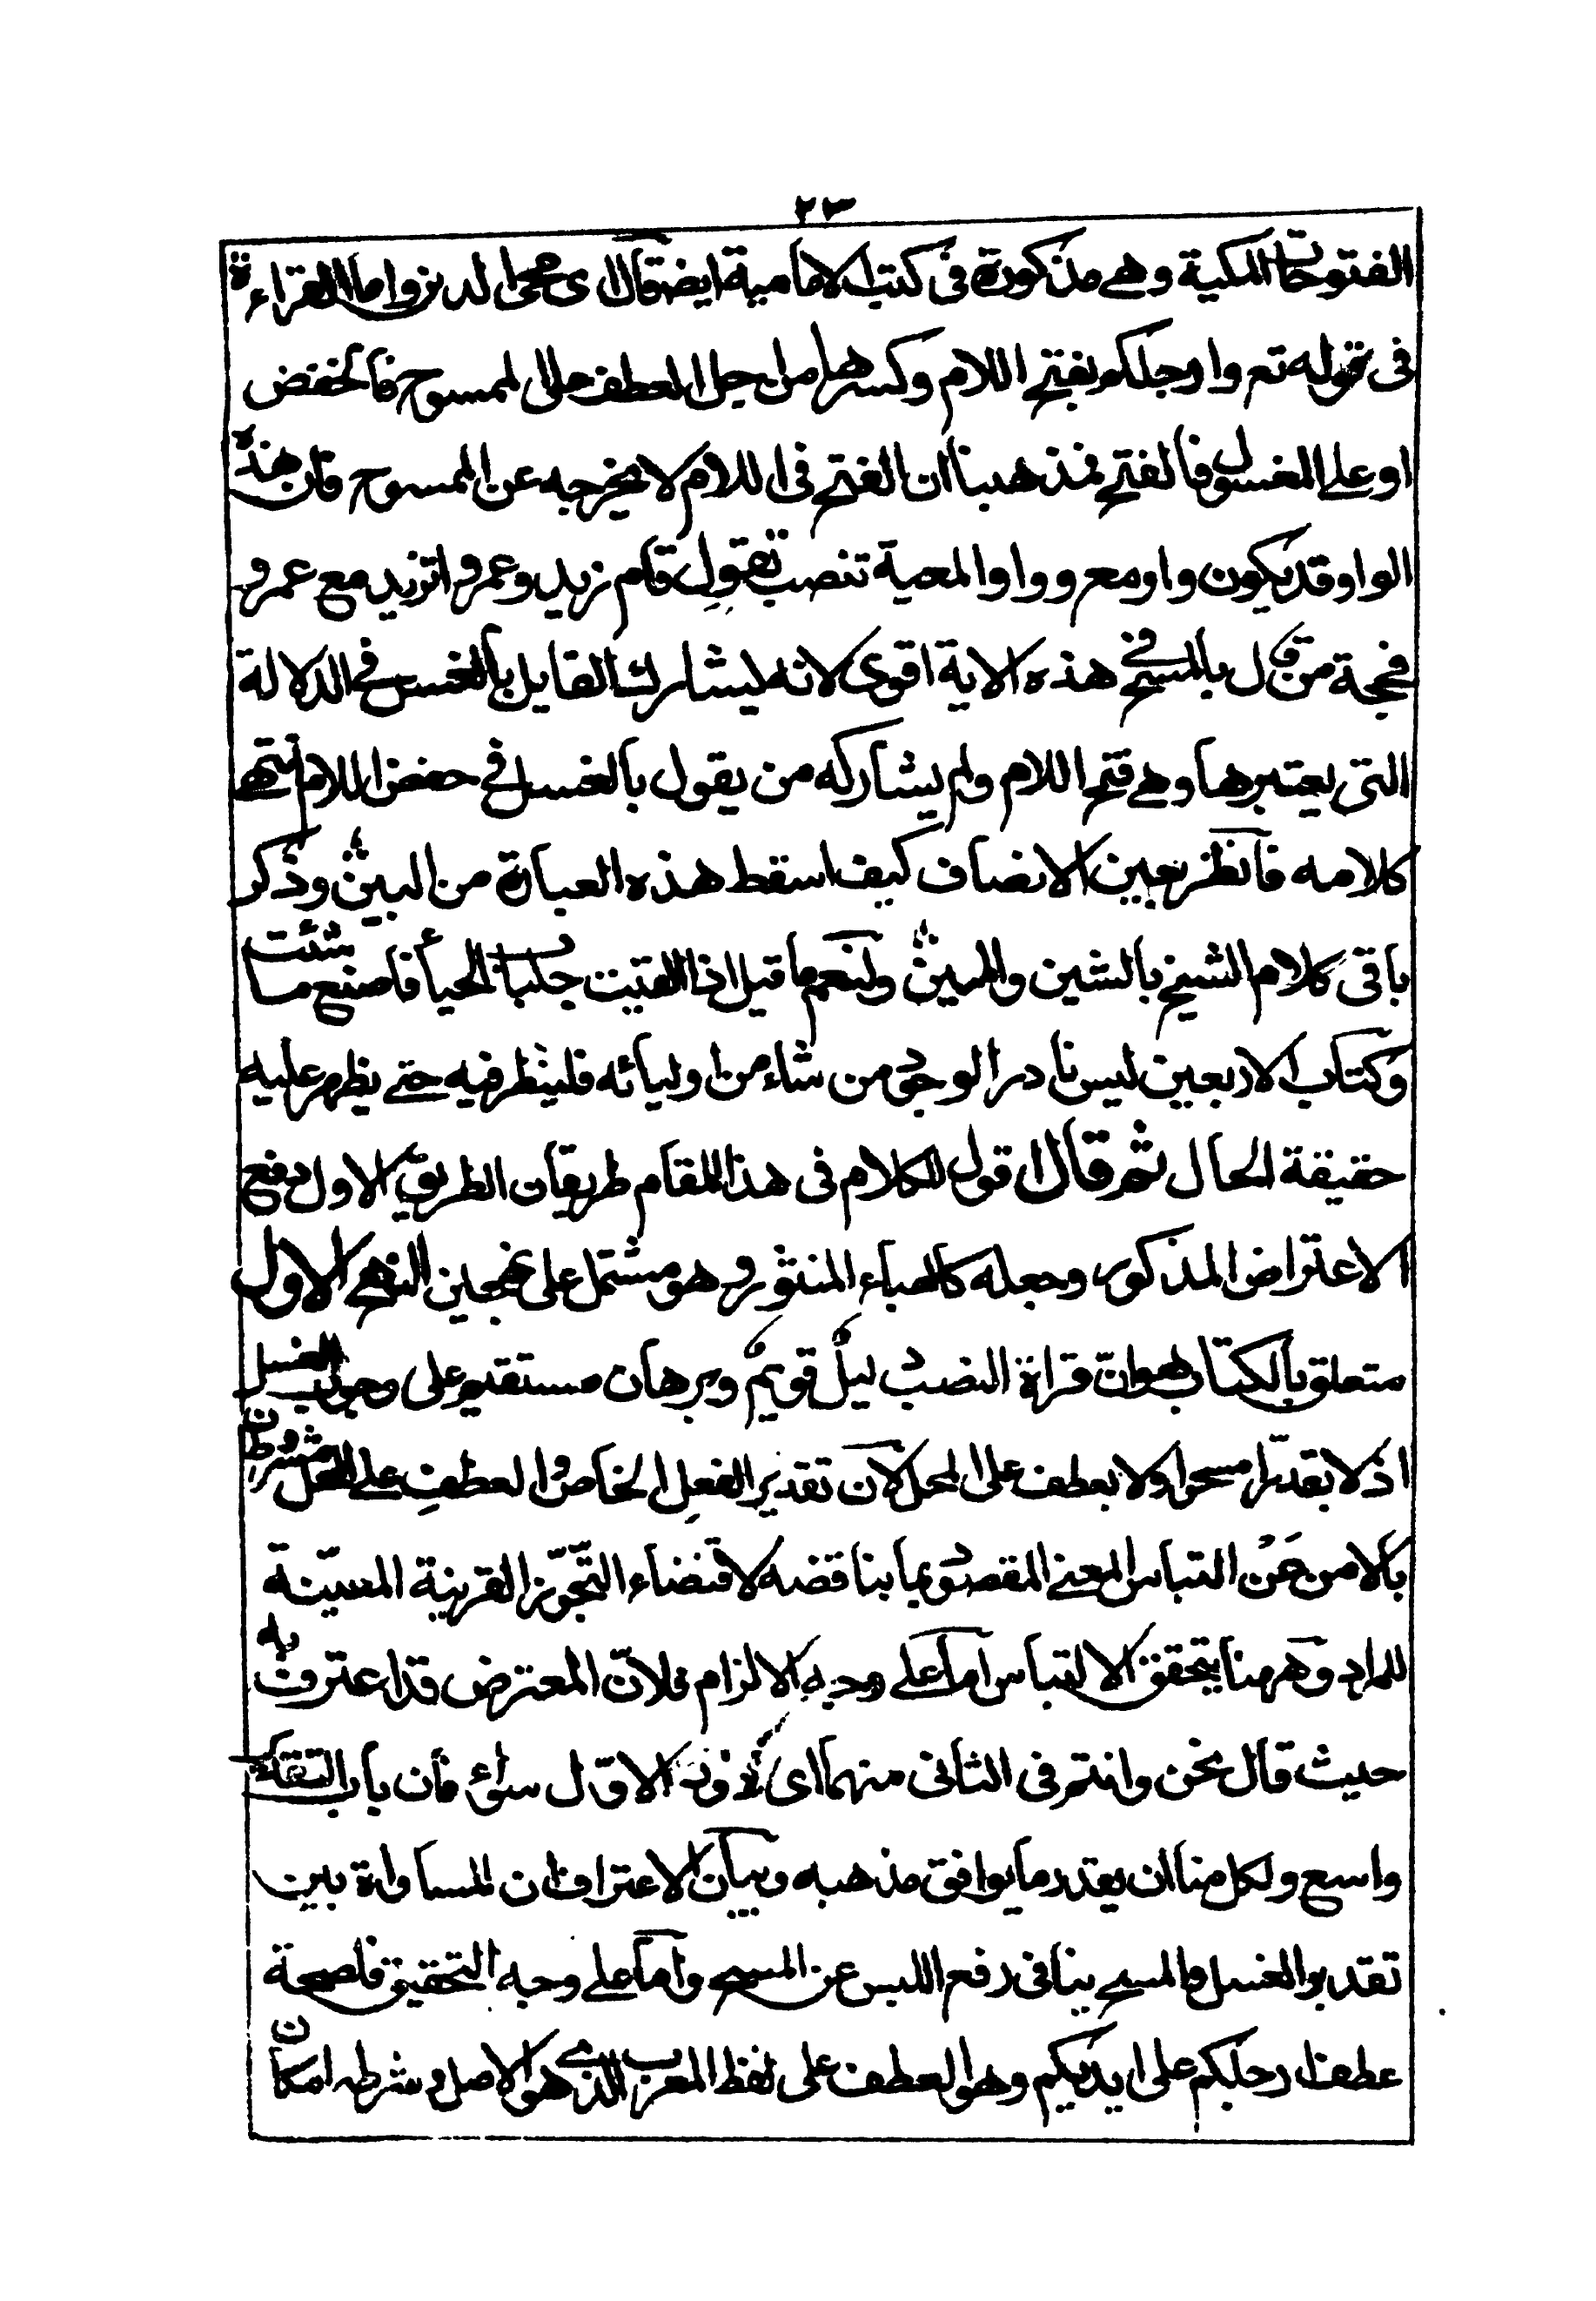 ٢٣
الفتوحات المكية وهي مذكورة في كتب الامامية ايضا قال اى محى الدين واما القراءة
فى قوله تع وارجلكم بفتح اللام وكسرها من اجل العطف على الممسوح فالخفض
او على المغسول فالفتح فمذهبنا ان الفتح فى اللام لا يخرجه عن الممسوح فان هذه
الواو قد يكون واو مع وواو المعية تنصب تقول قام زيد وعمرو اتزيد مع عمرو
فحجة من قال بالمسح في هذه الاية اقوى لانه يشارك القايل بالغسل في الدلالة
التى يعتبرها وهى فتح اللام ولم يشاركه من يقول بالغسل في خفض اللام انتهى
كلامه فانظر بعين الانصاف كيف اسقط هذه العبارة من البين وذكر
باقى كلام الشيخ بالشين والمين ولنعم ما قيل اذا القيت جلباب الحيا فاصنع ما شئت
وكتاب الاربعين ليس نادر الوجود من شاء من اوليائه فلينظر فيه حتى يظهر عليه
حقيقة الحال ثم قال اقول الكلام فى هذا المقام طريقان الطريق الاول دفع
الاعتراض المذكور وجعله كالهباء المنثور وهو مشتمل على نهجين النهج الاول
متعلق بالكتاب هو ان قراة النصب دليل قويم وبرهان مستقيم على وجوب الغسل
اذ لا يقدر امسحوا ولا يعطف على المحل لان تقدير الفعل الخاص والعطف على المحل مشروطان
بالامن عن التباس المعنى المقصود بما يناقضه لاقتضاء التجوز القرينة المعينة
للمراد وههنا يتحقق الالتباس اما على وجه الالزام فلان المعترض قد اعترف به
حيث قال نحن وانتم فى الثانى منهما اى دون الاول سواء فان باب التقدير
واسع ولكل منا ان يقدر ما يوافق مذهبه وبيان الاعتراف ان المساواة بين
تقدير الغسل والمسح ينافى رفع اللبس عن المسح واما على وجه التحقيق فلصحة
عطف ارجلكم على ايديكم وهو العطف على لفظ المعرب الذى هو الاصل وشرطه امكان